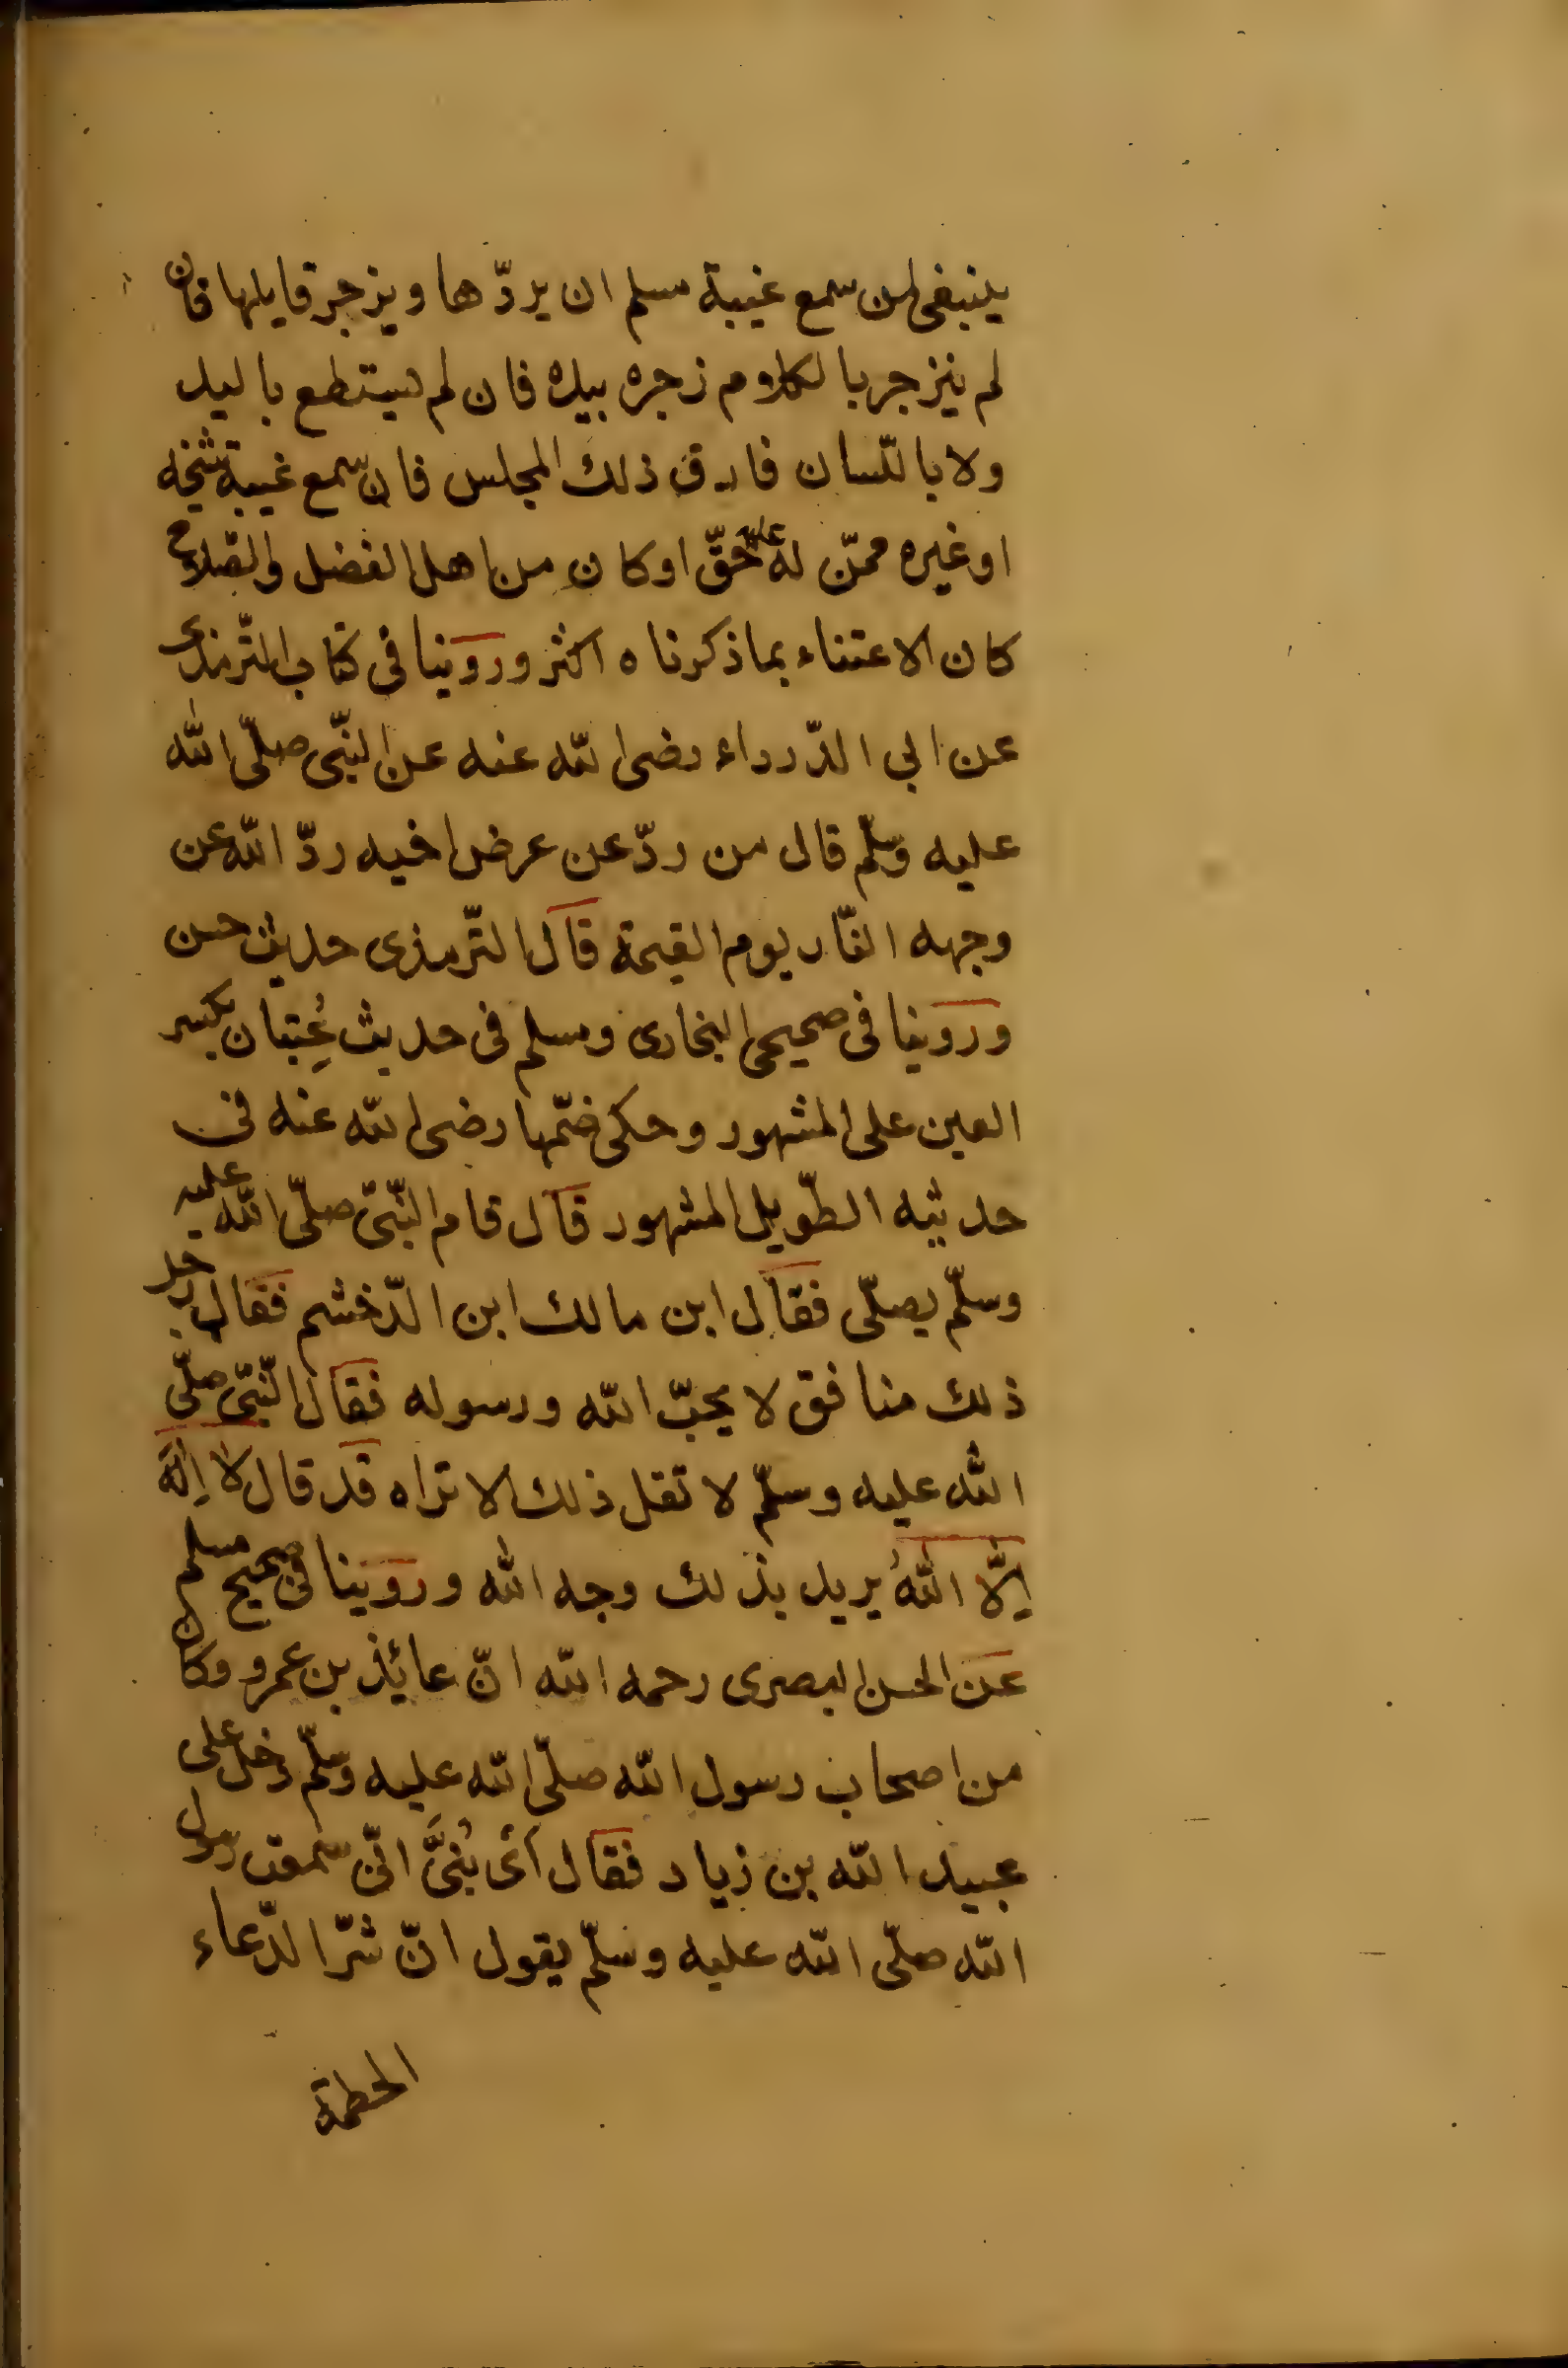 ينبغى لمن سمع غيبة مسلم ان يردّها ويزجر قايلها فان
لم ينزجر بالكلام زجره بيده فان لم يستطع باليد
ولا باللّسان فارق ذلك المجلس فان سمع غيبة شيخه
او غيره ممّن له عليه حقّ او كان من اهل الفضل والصّلاح
كان الاعتناء بما ذكرناه اكثر وروينا فى كتاب التّرمذى
عن ابي الدّرداء رضى اللّه عنه عن النّبى صلّى اللّه
عليه وسلّم قال من ردّ عن عرض اخيه ردّ اللّه عن
وجهه النّار يوم القيمة قال التّرمذى حديث حسن
وروينا فى صحيحى البخارى ومسلم فى حديث عُِتبان بكسر
العين على المشهور وحكى ضمّها رضى اللّه عنه فى
حديثه الطّويل المشهور قال قام النّبىّ صلّى اللّه عليه
وسلّم يصلّى فقال ابن مالك ابن الدّخشم فقال رجل
ذلك منافق لا يحبّ اللّه ورسوله فقال النّبىّ صلّى
اللّه عليه وسلّم لا تقل ذلك الا تراه قد قال لا اِلٰه
اِلَّا اللّٰهُ يريد بذلك وجه اللّه وروينا فى صحيح مسلم
عن الحسن البصرى رحمه اللّه انّ عائذ بن عمرو وكان
من اصحاب رسول اللّه صلّى اللّه عليه وسلّم دخل على
عبيد اللّه بن زياد فقال اَى بُنَىَّ انّى سمعت رسول
اللّه صلّى اللّه عليه وسلّم يقول انّ شرّ الدّعاء
الحطمة